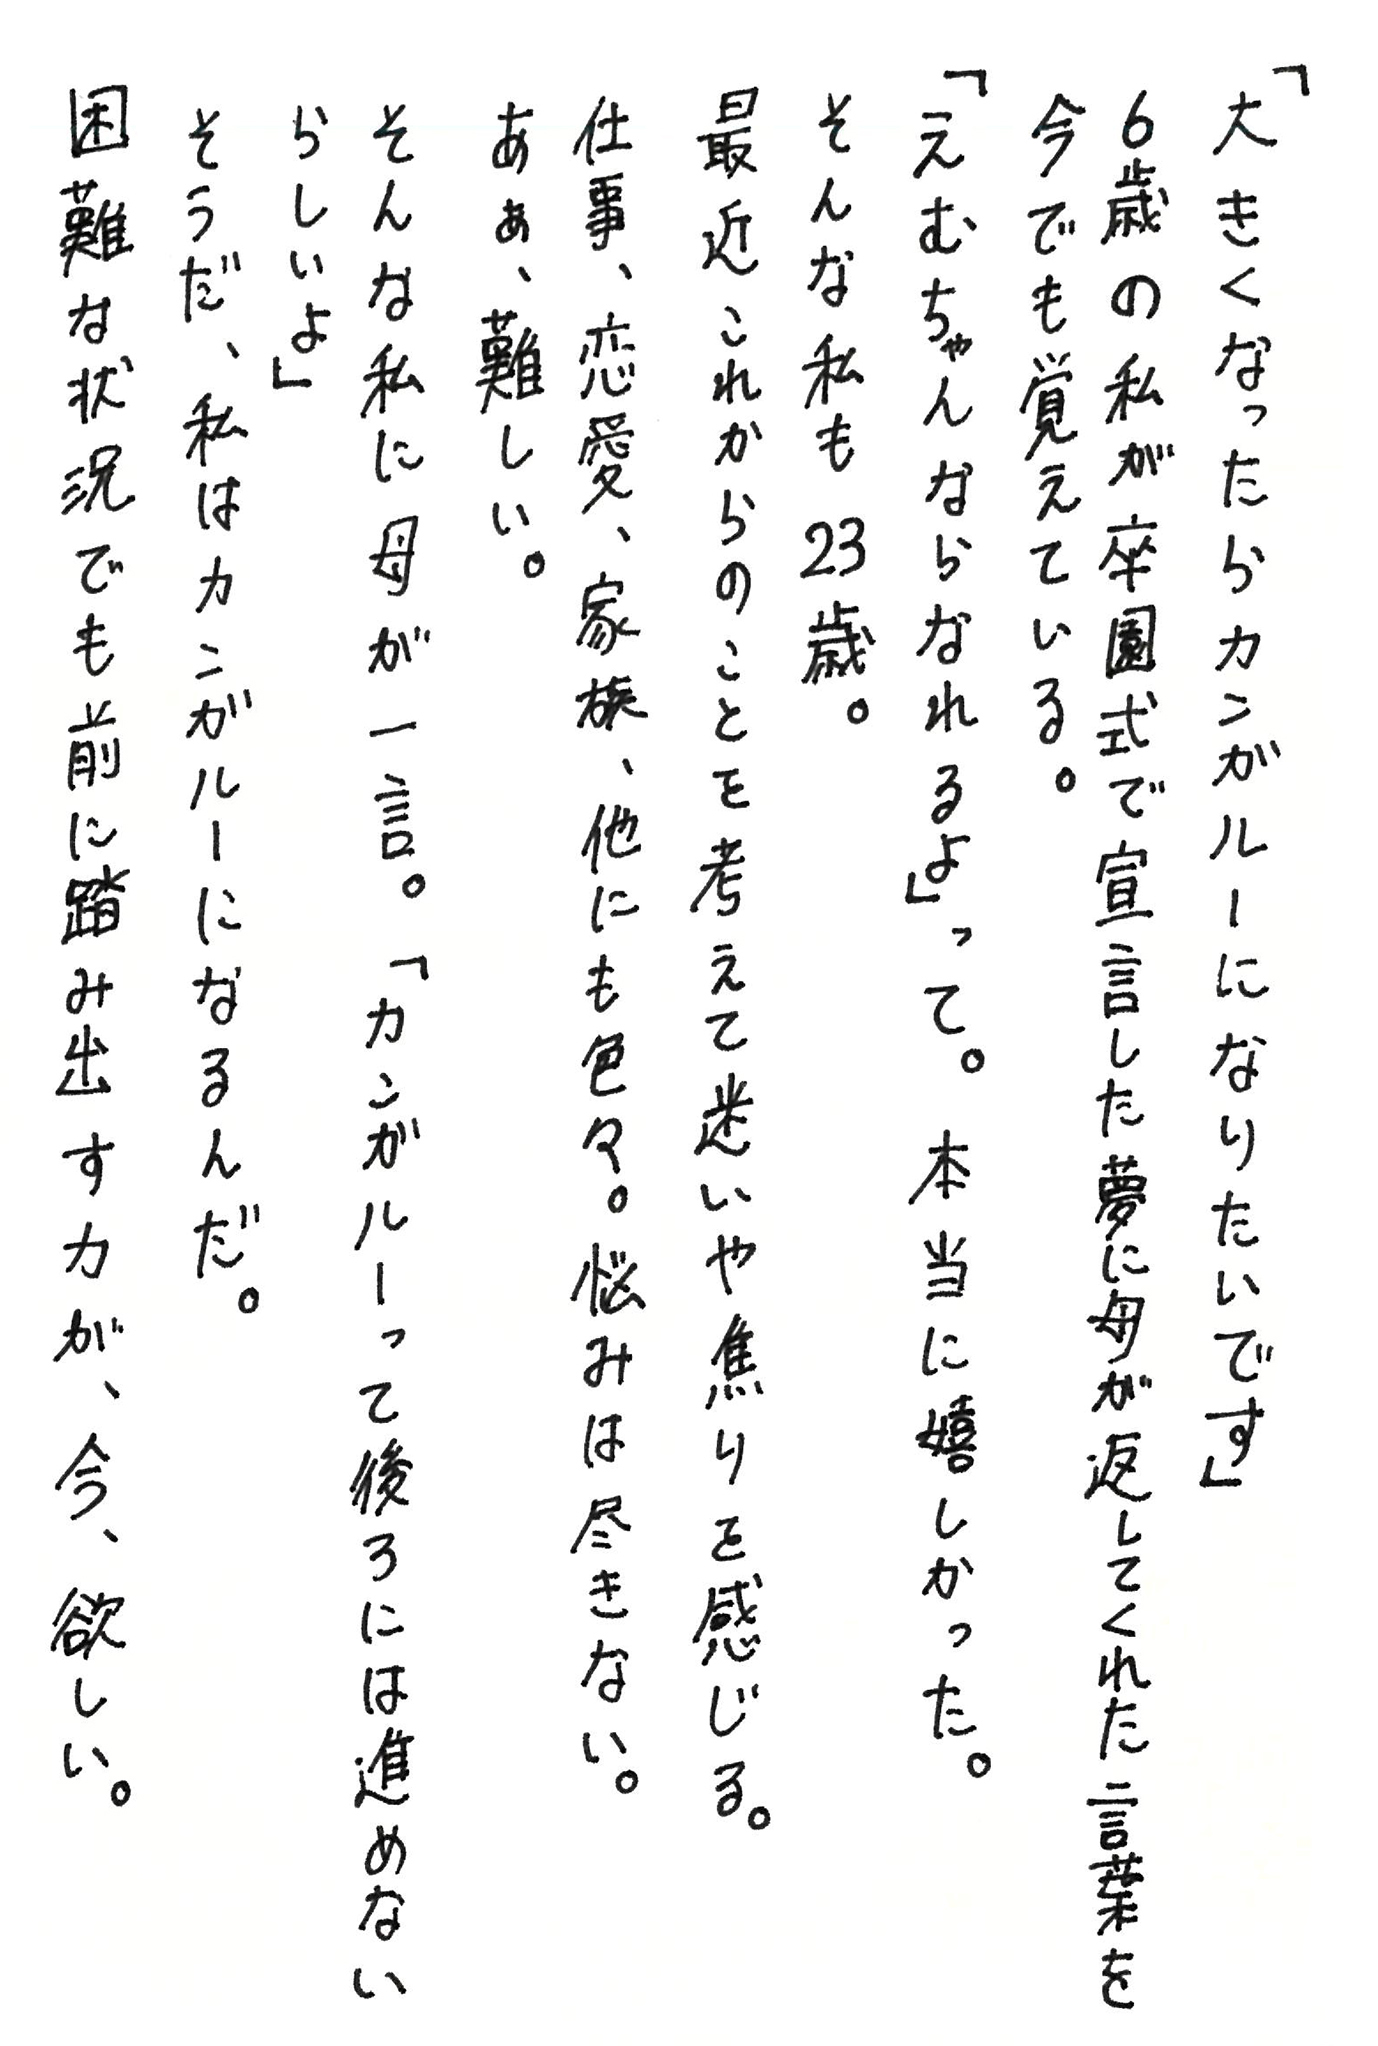 「大きくなったらカンガルーになりたいです」
6歳の私が卒園式で宣言した夢に母が返してくれた言葉を
今でも覚えている。
「えむちゃんならなれるよ」って。本当に嬉しかった。
そんな私も23歳。
最近これからのことを考えて迷いや焦りを感じる。
仕事、恋愛、家族、他にも色々。悩みは尽きない。
あぁ、難しい。
そんな私に母が一言。「カンガルーって後ろには進めない
らしいよ」
そうだ、私はカンガルーになるんだ。
困難な状況でも前に踏み出す力が、今、欲しい。